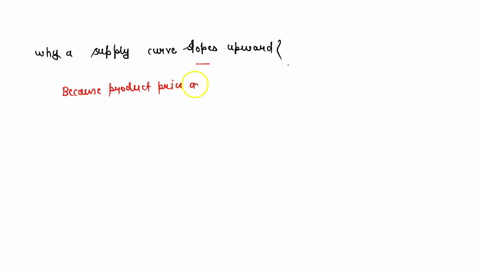 why a supply curve slopes upward {
Because product price a